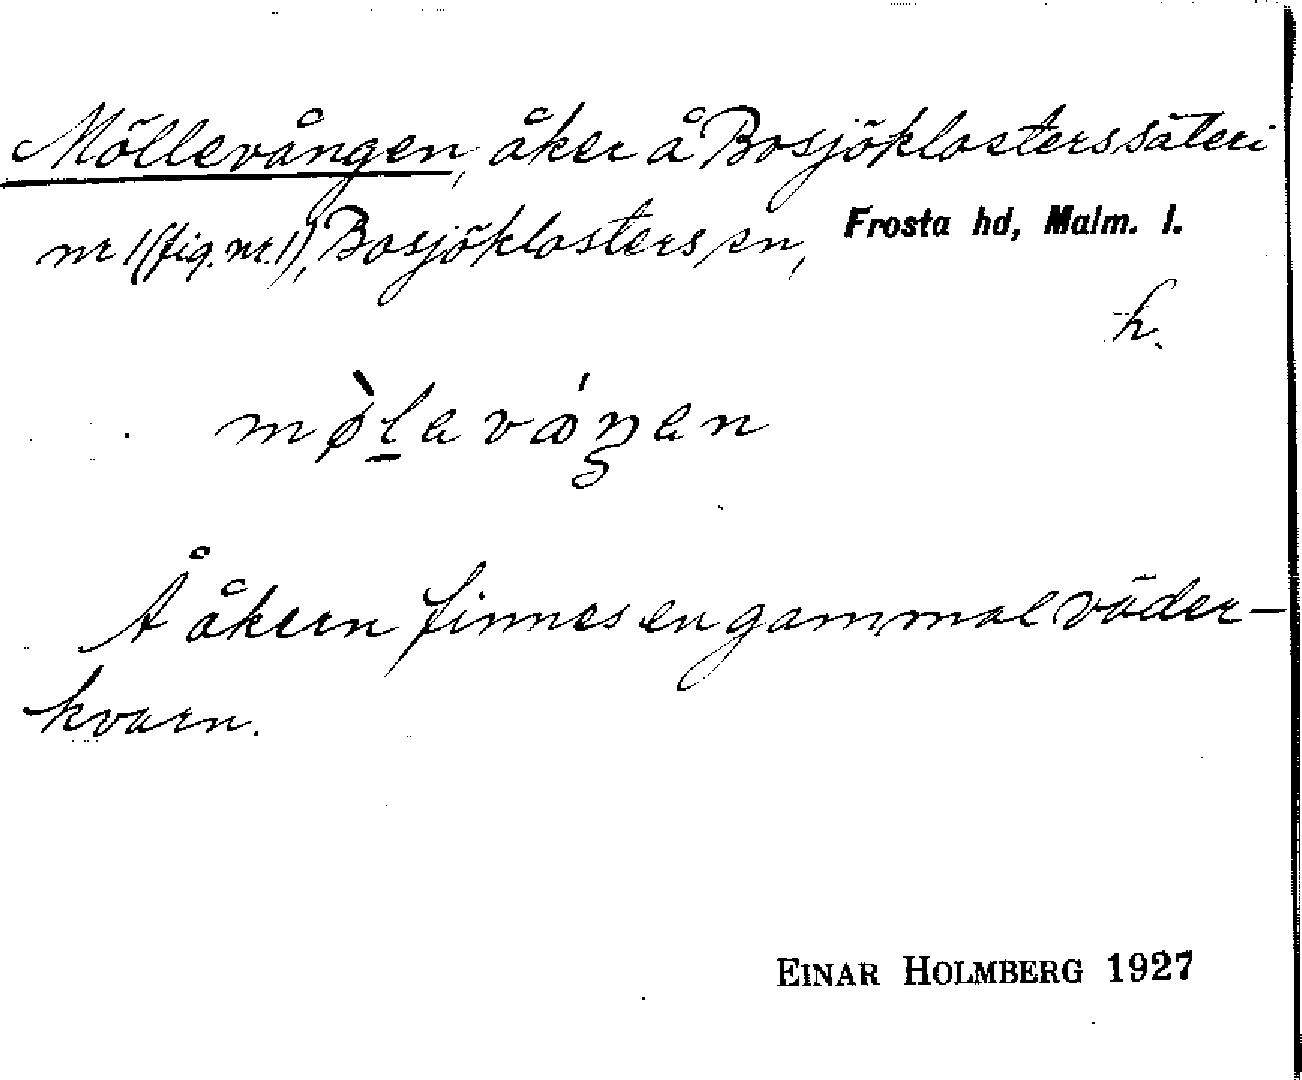 Möllevången, åker å Bosjöklosters säteri
nr 1 (fig. nr. 1), Bosjöklosters sn, Frosta hd, Malm. l.
h.
mø̀la vǻŋan
Å åkern finnes en gammal väder-
kvarn.
EINAR HOLMBERG 1927